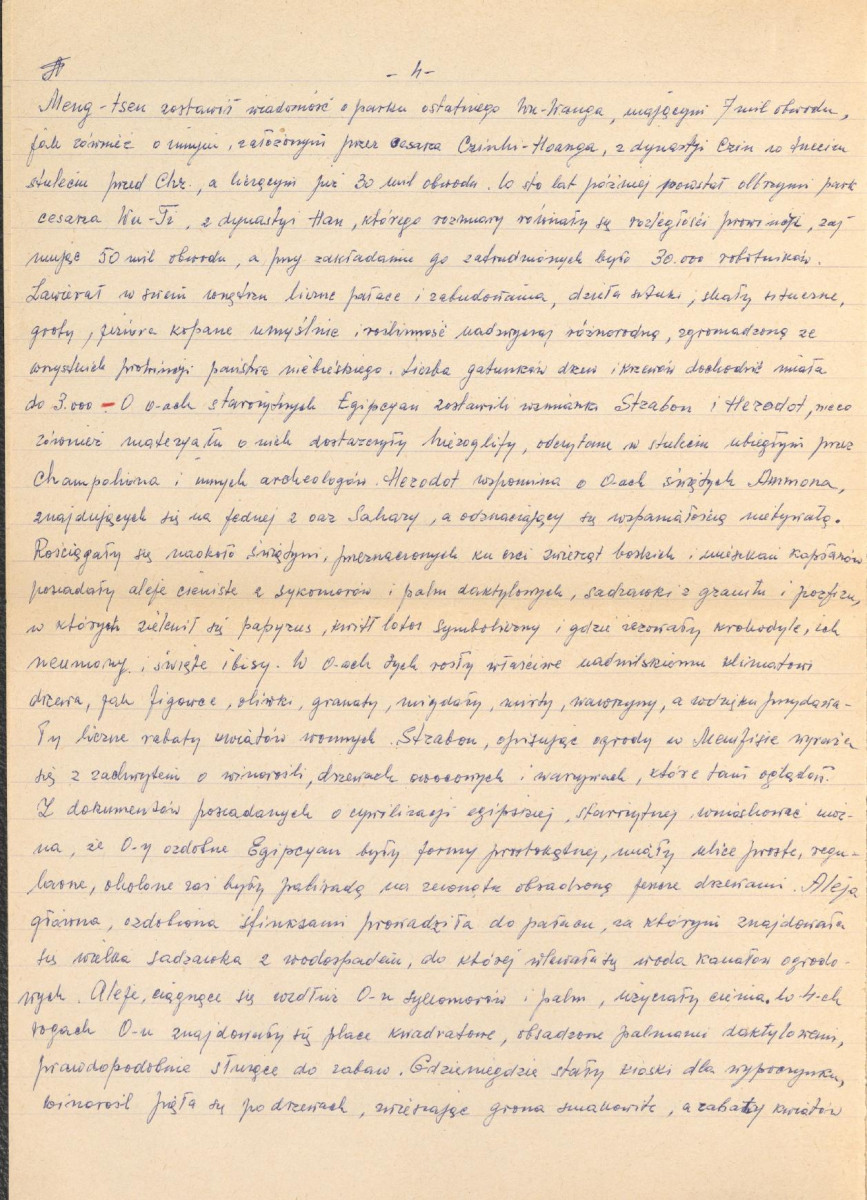 - 4 -
Meng-tsen zostawił wiadomość o parku ostatniego Wu-Wanga, mającym 7 mil obwodu,
jak również o innym, założonym przez cesarza Czinhi-Hoanga, z dynastji Czin w trzecim
stuleciu przed Chr., a liczącym już 30 mil obwodu. W sto lat później powstał olbrzymi park
cesarza Wu-Ti, z dynastyi Han, którego rozmiary równały się rozległości prowincji, zaj-
mując 50 mil obwodu, a przy zakładaniu go zatrudnionych było 30.000 robotników.
Zawierał w swem wnętrzu liczne pałace i zabudowania, dzieła sztuki, skały sztuczne,
groty, jeziora kopane umyślnie i roślinność nadzwyczaj różnorodną, zgromadzoną ze
wszystkich prowincji państwa niebieskiego. Liczba gatunków drzew i krzewów dochodzić miała
do 3.000 - O o-ach starożytnych Egipcyan zostawili wzmianki Strabon i Herodot, nieco
również materyału o nich dostarczyły hieroglify, odczytane w stuleciu ubiegłym przez
Champoliona i innych archeologów. Herodot wspomina o O-ach świątyń Ammona,
znajdujących się na jednej z oaz Sahary, a odznaczający się wspaniałością niebywałą.
Rościągały się naokoło świątyni, przeznaczonych ku czci zwierząt boskich i mieszkań kapłanów
posiadały aleje cieniste z sykomorów i palm daktylowych, sadzawki z granitu i porfiru,
w których zielenił się papyrus, kwitł lotos symboliczny i gdzie żerowały krokodyle, ich
neumony i święte ibisy. W O-ach tych rosły właściwe nadnilskiemu klimatowi
drzewa, jak figowce, oliwki, granaty, migdały, mirty, wawrzyny, a wdzięku przydawa-
ły liczne rabaty kwiatów wonnych. Strabon, opisując ogrody w Memfisie wyraża
się z zachwytem o winorośli, drzewach owocowych i warzywach, które tam oglądał.
Z dokumentów posiadanych o cywilizacji egipskiej, starożytnej, wnioskować moż-
na, że O-y ozdobne Egipcyan były formy prostokątnej, miały ulice proste, regu-
larne, okolone zaś były palisadą na zewnątrz obsadzoną jeszcze drzewami. Aleja
główna, ozdobiona sfinksami prowadziła do pałacu, za którym znajdowała
się wielka sadzawka z wodospadem, do której wlewała się woda kanałów ogrodo-
wych. Aleje, ciągnące się wzdłuż O-u sykomorów i palm, użyczały cienia. W 4-ch
rogach O-u znajdowały się place kwadratowe, obsadzone palmami daktylowemi,
prawdopodobnie służące do zabaw. Gdzieniegdzie stały kioski dla wypoczynku,
winorośl pięła się po drzewach, zwieszając grona smakowite, a rabaty kwiatów